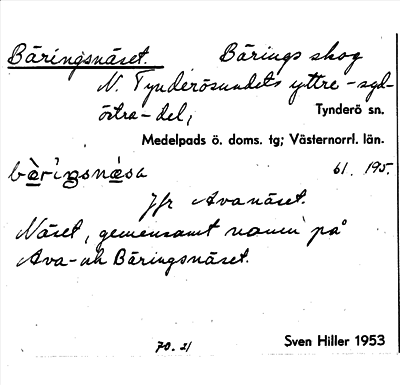 Bäringsnäset. Bärings skog
N. Tynderösundets yttre-syd-
östra-del, Tynderö sn.
Medelpads ö. doms. tg; Västernorrl. län.
bæ̀ringsnæsa 61. 195.
Jfr Avanäset.
Näset, gemensamt namn på
Ava- och Bäringsnäset.
70. 21
Sven Hiller 1953